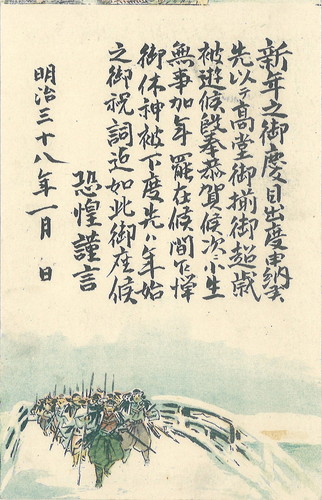 新年之御慶目出度申納候
先以テ高堂御揃御超歳
被遊候段奉恭賀候次ニ小生
無事加年罷在候間乍憚
御休神被下度先ハ年始
之御祝詞迄如此御座候
恐惶謹言
明治三十八年一月 日